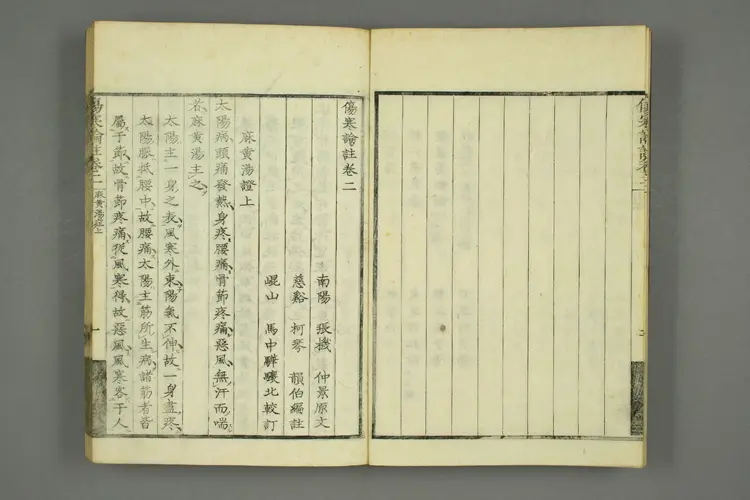 傷寒論註卷二
南陽 張機 仲景原文
慈谿 柯琴 韻伯編註
崐山 馬中驊驥北較訂
麻黃湯證上
太陽病頭痛發熱身疼腰痛骨節疼痛惡風無汗而喘
者麻黃湯主之
太陽主一身之表風寒外束陽氣不伸故一身盡疼
太陽脈抵腰中故腰痛太陽主筋所生病諸筋者皆
屬于節故骨節疼痛從風寒得故惡風風寒客于人
傷寒論註卷二
麻黃湯證上
一